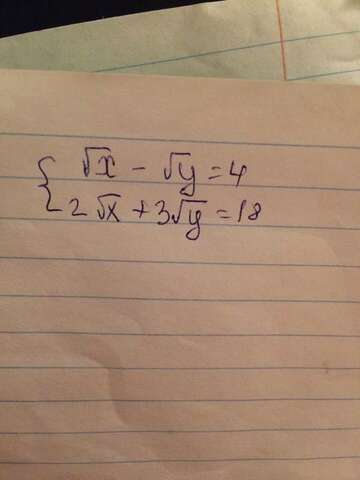 √x - √y = 4
2√x + 3√y = 18